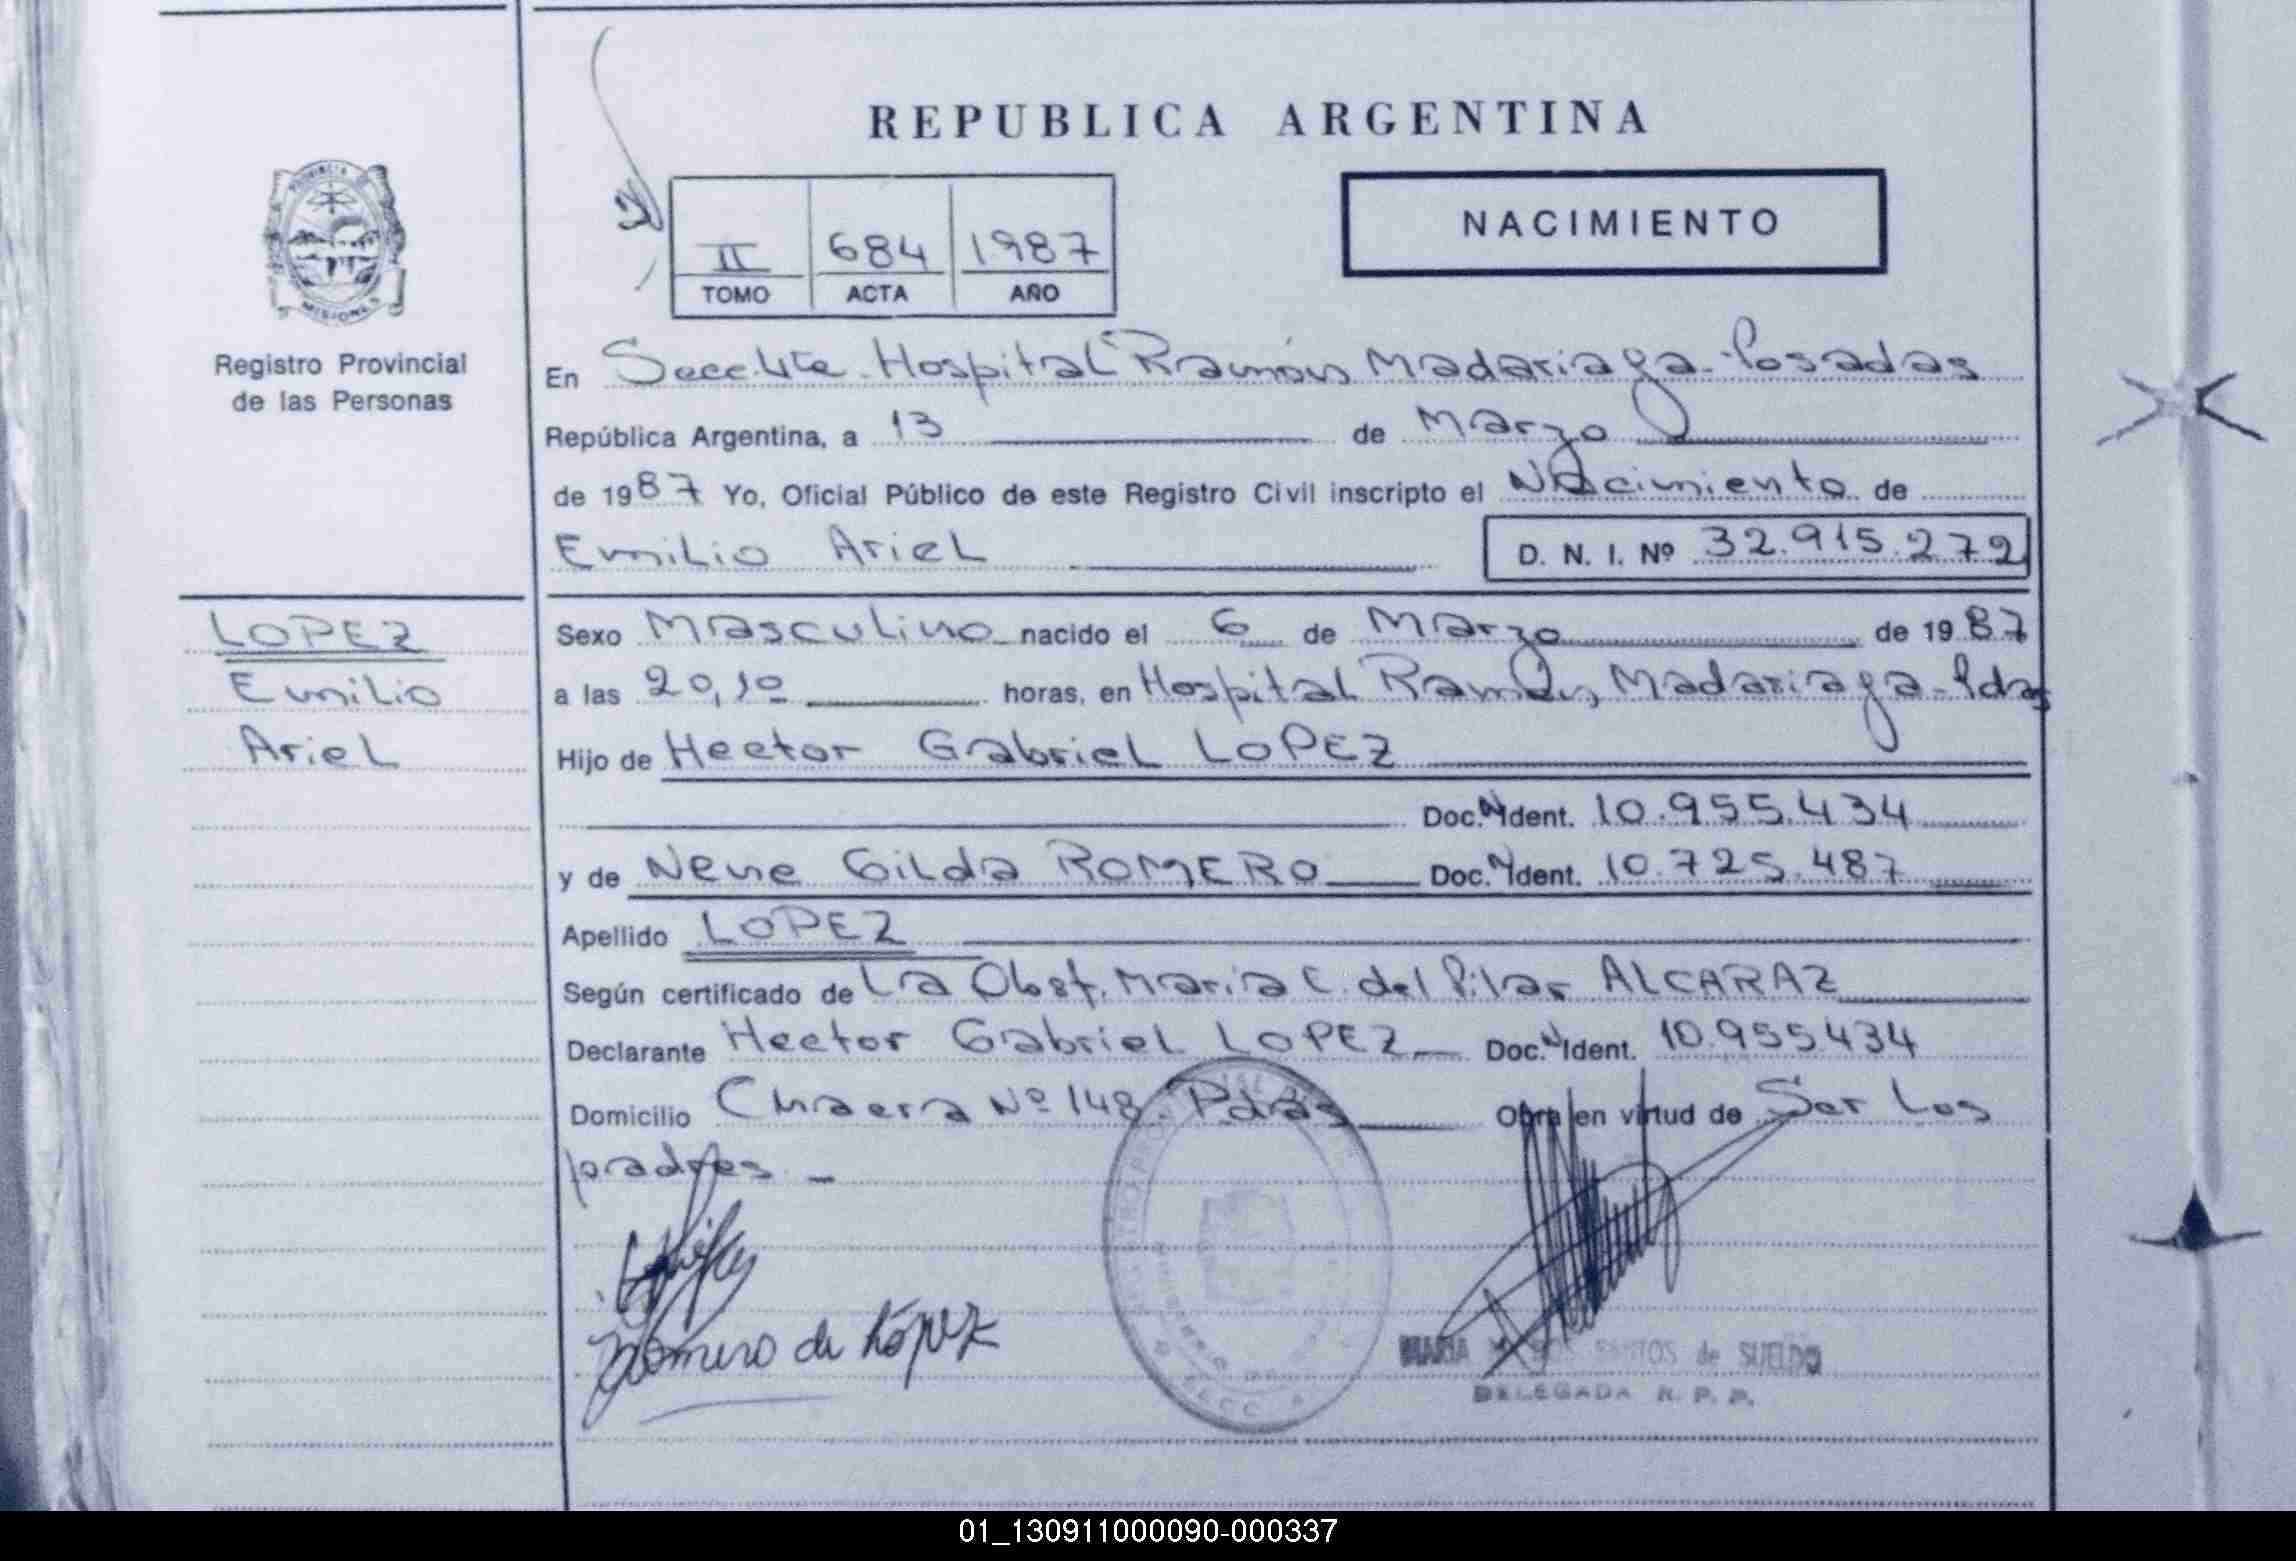 REPUBLICA ARGENTINA
PROVINCIA
MISIONES
Registro Provincial
de las Personas
II 684 1987
TOMO ACTA AÑO
NACIMIENTO
En Secc. 4ta. Hospital Ramón Madariaga - Posadas
República Argentina, a 13 de Marzo
de 1987 Yo, Oficial Público de este Registro Civil inscripto el Nacimiento de
Emilio Ariel D. N. I. Nº 32.915.272
LOPEZ
Emilio
Ariel
Sexo Masculino nacido el 6 de Marzo de 1987
a las 20,10 horas, en Hospital Ramón Madariaga - Pdas
Hijo de Hector Gabriel LOPEZ
Doc. N Ident. 10.955.434
y de Nene Gilda ROMERO Doc. N Ident. 10.725.487
Apellido LOPEZ
Según certificado de La Obst. Maria C. del Pilar ALCARAZ
Declarante Hector Gabriel LOPEZ Doc. N Ident. 10.955434
Domicilio Chacra Nº 148. Pdas Obra en virtud de Ser Los
padres -
Romero de López
MARIA DOS SANTOS de SUELDO
DELEGADA R. P. P.
01_130911000090-000337